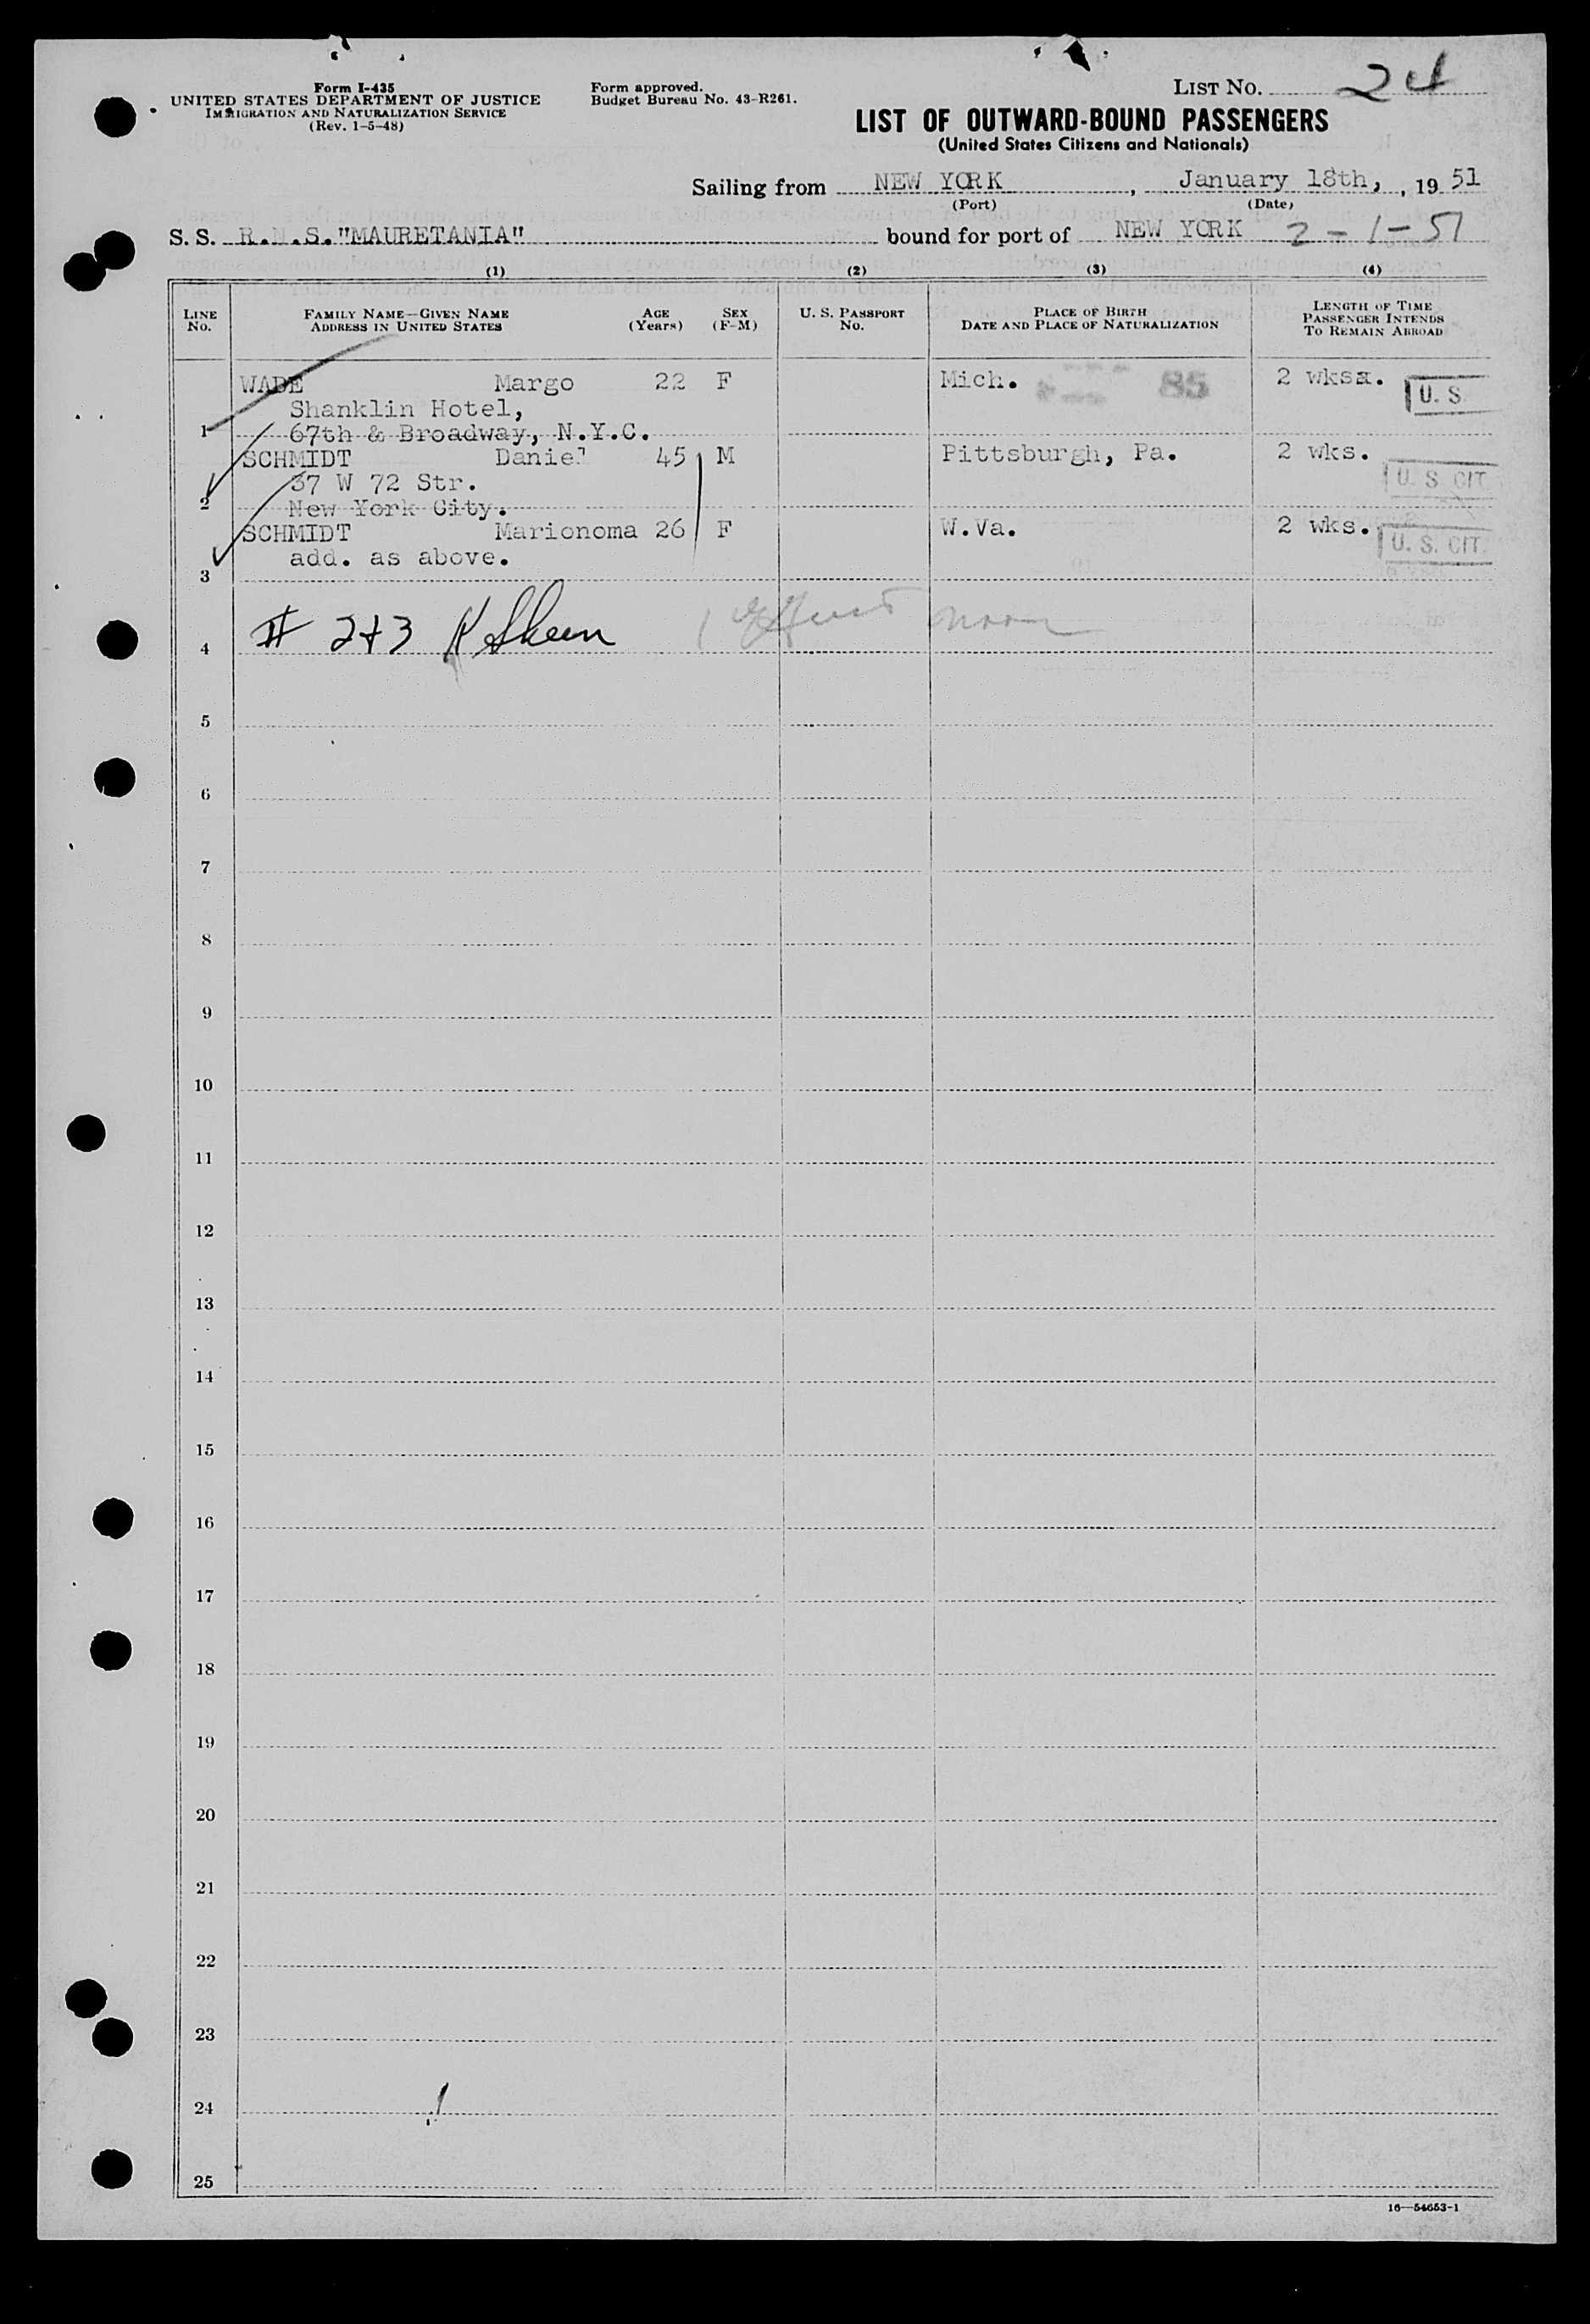 Form I-435
UNITED STATES DEPARTMENT OF JUSTICE
IMMIGRATION AND NATURALIZATION SERVICE
(Rev. 1-5-48)
Form approved.
Budget Bureau No. 43-R261.
LIST NO. 24
LIST OF OUTWARD-BOUND PASSENGERS
(United States Citizens and Nationals)
Sailing from NEW YORK, January 18th, , 19 51
(Port) (Date)
S. S. R.M.S."MAURETANIA" bound for port of NEW YORK 2-1-51
(1) (2) (3) (4)
LINE No. FAMILY NAME—GIVEN NAME ADDRESS IN UNITED STATES AGE (Years) SEX (F-M) U. S. PASSPORT No. PLACE OF BIRTH DATE AND PLACE OF NATURALIZATION LENGTH OF TIME PASSENGER INTENDS TO REMAIN ABROAD
WADE Margo 22 F Mich. 85 2 wksx. U. S.
Shanklin Hotel,
1 67th & Broadway, N.Y.C.
SCHMIDT Daniel 45 M Pittsburgh, Pa. 2 wks. U. S. CIT.
37 W 72 Str.
2 New York City.
SCHMIDT Marionoma 26 F W.Va. 2 wks. U. S. CIT.
add. as above.
3
4 # 2+3
5
6
7
8
9
10
11
12
13
14
15
16
17
18
19
20
21
22
23
24
25
16—54653-1